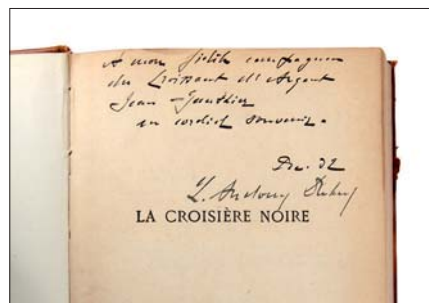 A mon fidèle compagnon
du Croissant d'Argent
Jean Gauthier
en cordial souvenir.
Déc. 32
L. Audouin Dubreuil
LA CROISIÈRE NOIRE